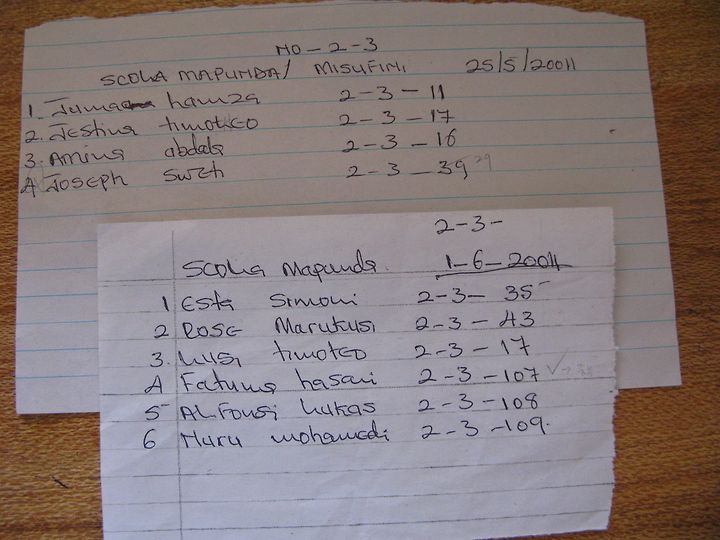 NO-2-3
SCOLIA MAPUNDA/ MISUFINI 25/5/20011
1. Juma hamza 2-3-11
2. Jestina timoteo 2-3-17
3. Amina abdala 2-3-16
4 Joseph 2-3-39 29
2-3-
SCOLIA Mapunda. 1-6-20011
1 Esta Simoni 2-3-35
2 ROSE Marukusi 2-3-43
3. Lusi timoteo 2-3-17
4 Fatuma hasani 2-3-107
5 ALFonsi Lukas 2-3-108
6 Nuru mohamedi 2-3-109.